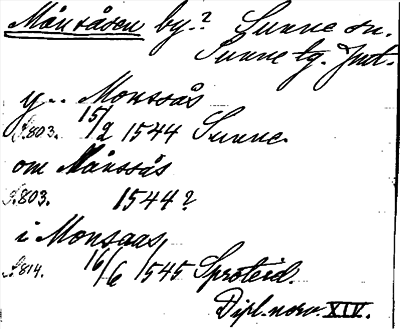 Månsåsen by.? Sunne sn.
Sunne tg. Jmt.
y.. Monssås
S.803. 15/2 1544 Sunne.
om Månssås
S.803. 1544?
i Monsaas,
S.814. 16/6 1545 Sproteid.
Dipl. norv. XIV.